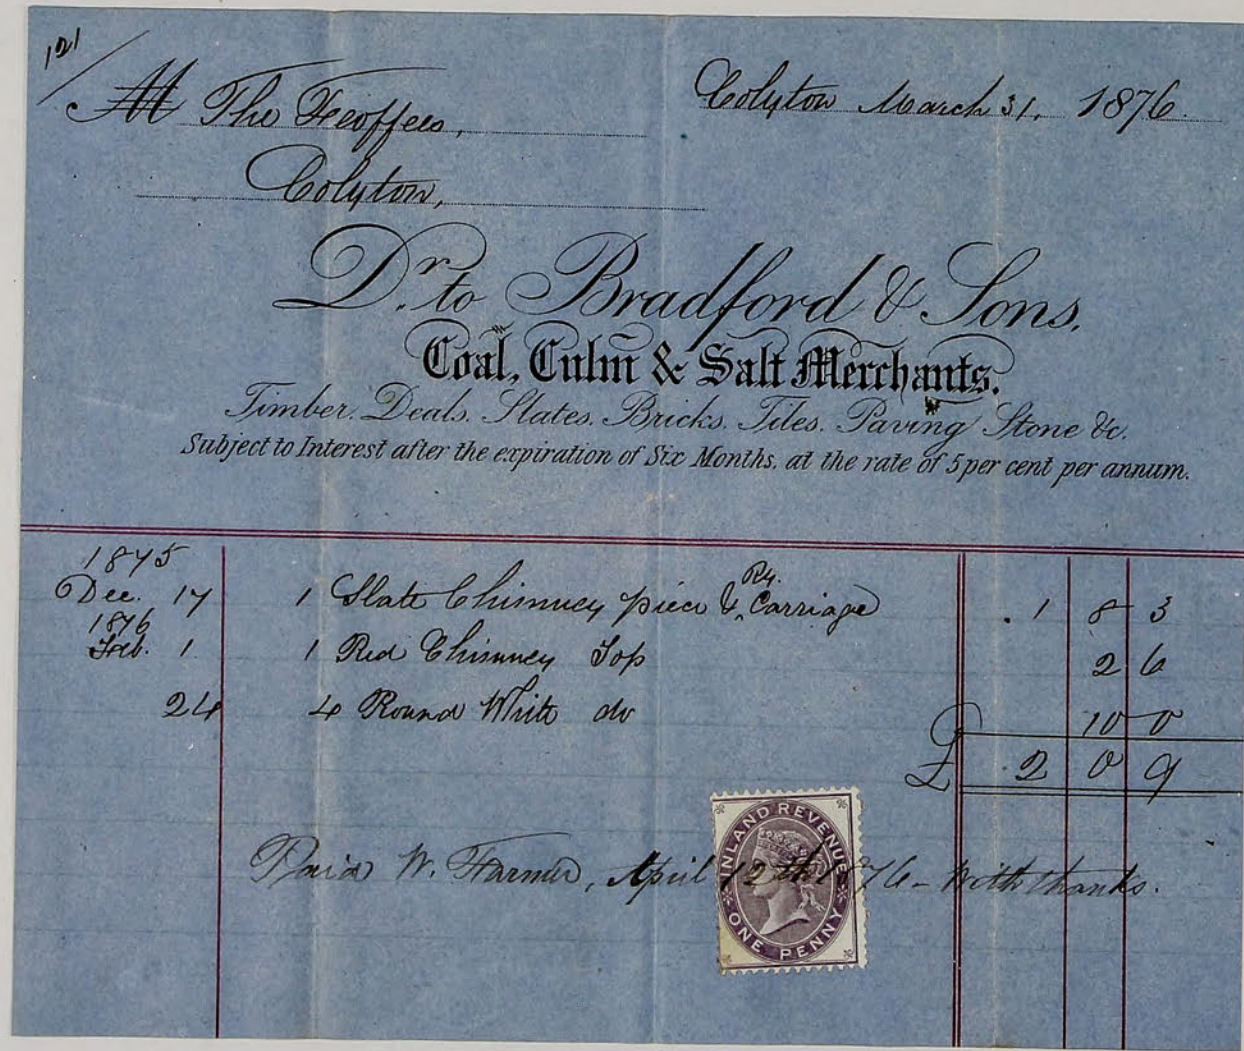 121
M The Feoffees, Colyton March 31, 1876.
Colyton,
Dr. to Bradford & Sons.
Coal, Culm & Salt Merchants.
Timber. Deals. Slates. Bricks. Tiles. Paving Stone &c.
Subject to Interest after the expiration of Six Months, at the rate of 5 per cent per annum.
1875
Dec. 17 1 Slate Chimney piece & Ry. Carriage . 1 8 3
1876
Feb. 1 1 Red Chimney Top 2 6
24 4 Round White do 10 0
£ . 2 0 9
INLAND REVENUE
Paid W. Farmer, April 12th 1876 - With thanks.
ONE PENNY